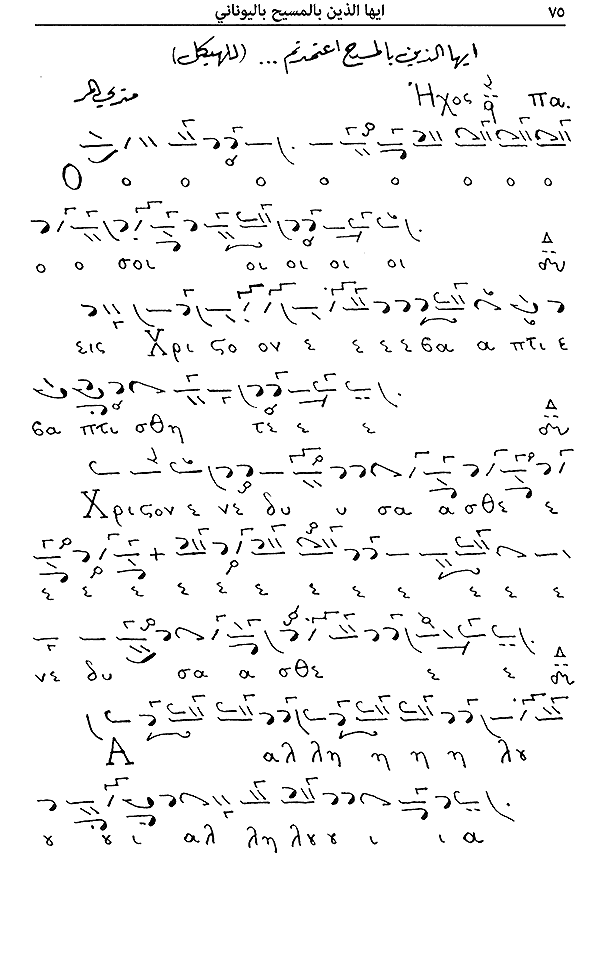 ٧٥ ايها الذين بالمسيح باليوناني
ايها الذين بالمسيح اعتمدتم ... (للهيكل)
Ἦχος πα.
Ο ο ο ο ο ο ο ο ο
ο ο σοι οι οι οι οι
εις Χρι ϛο ον ε ε ε ε βα α πτι ε
βα πτι σθη τε ε ε
Χριϛον ε νε δυ υ σα α σθε ε
ε ε ε ε ε ε ε ε ε ε ε
νε δυ σα α σθε ε ε
Α αλ λη η η η λȣ
ȣ ȣ ι αλ λη λȣ ȣ ι ι α